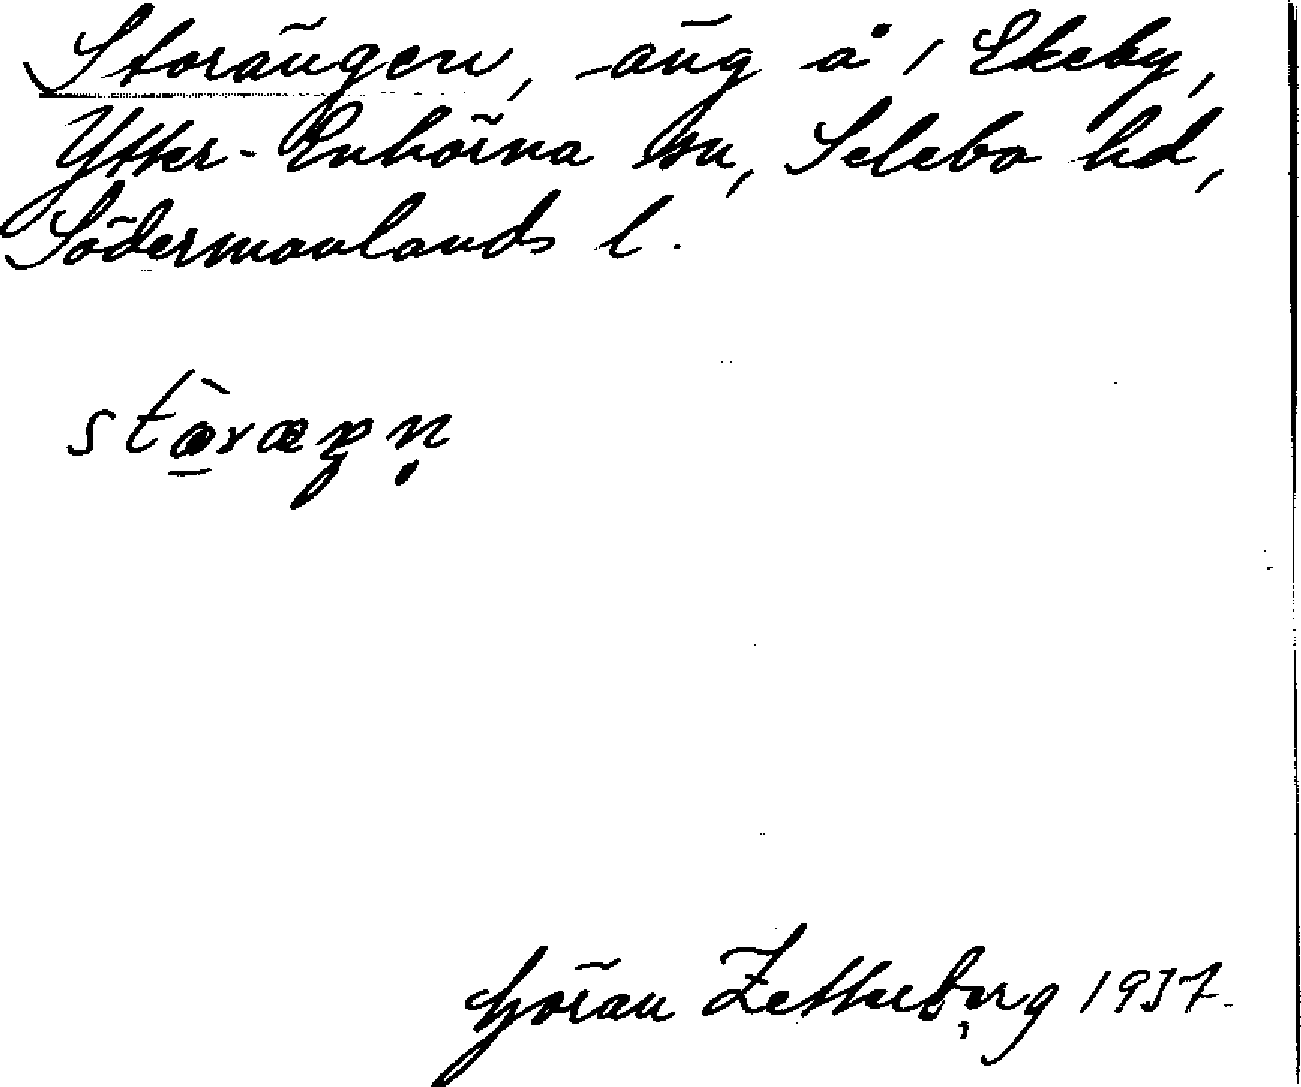 Storängen, äng å i Ekeby,
Ytter-Enhörna sn, Selebo hd,
Södermanlands l.
Göran Zetterberg 1937.